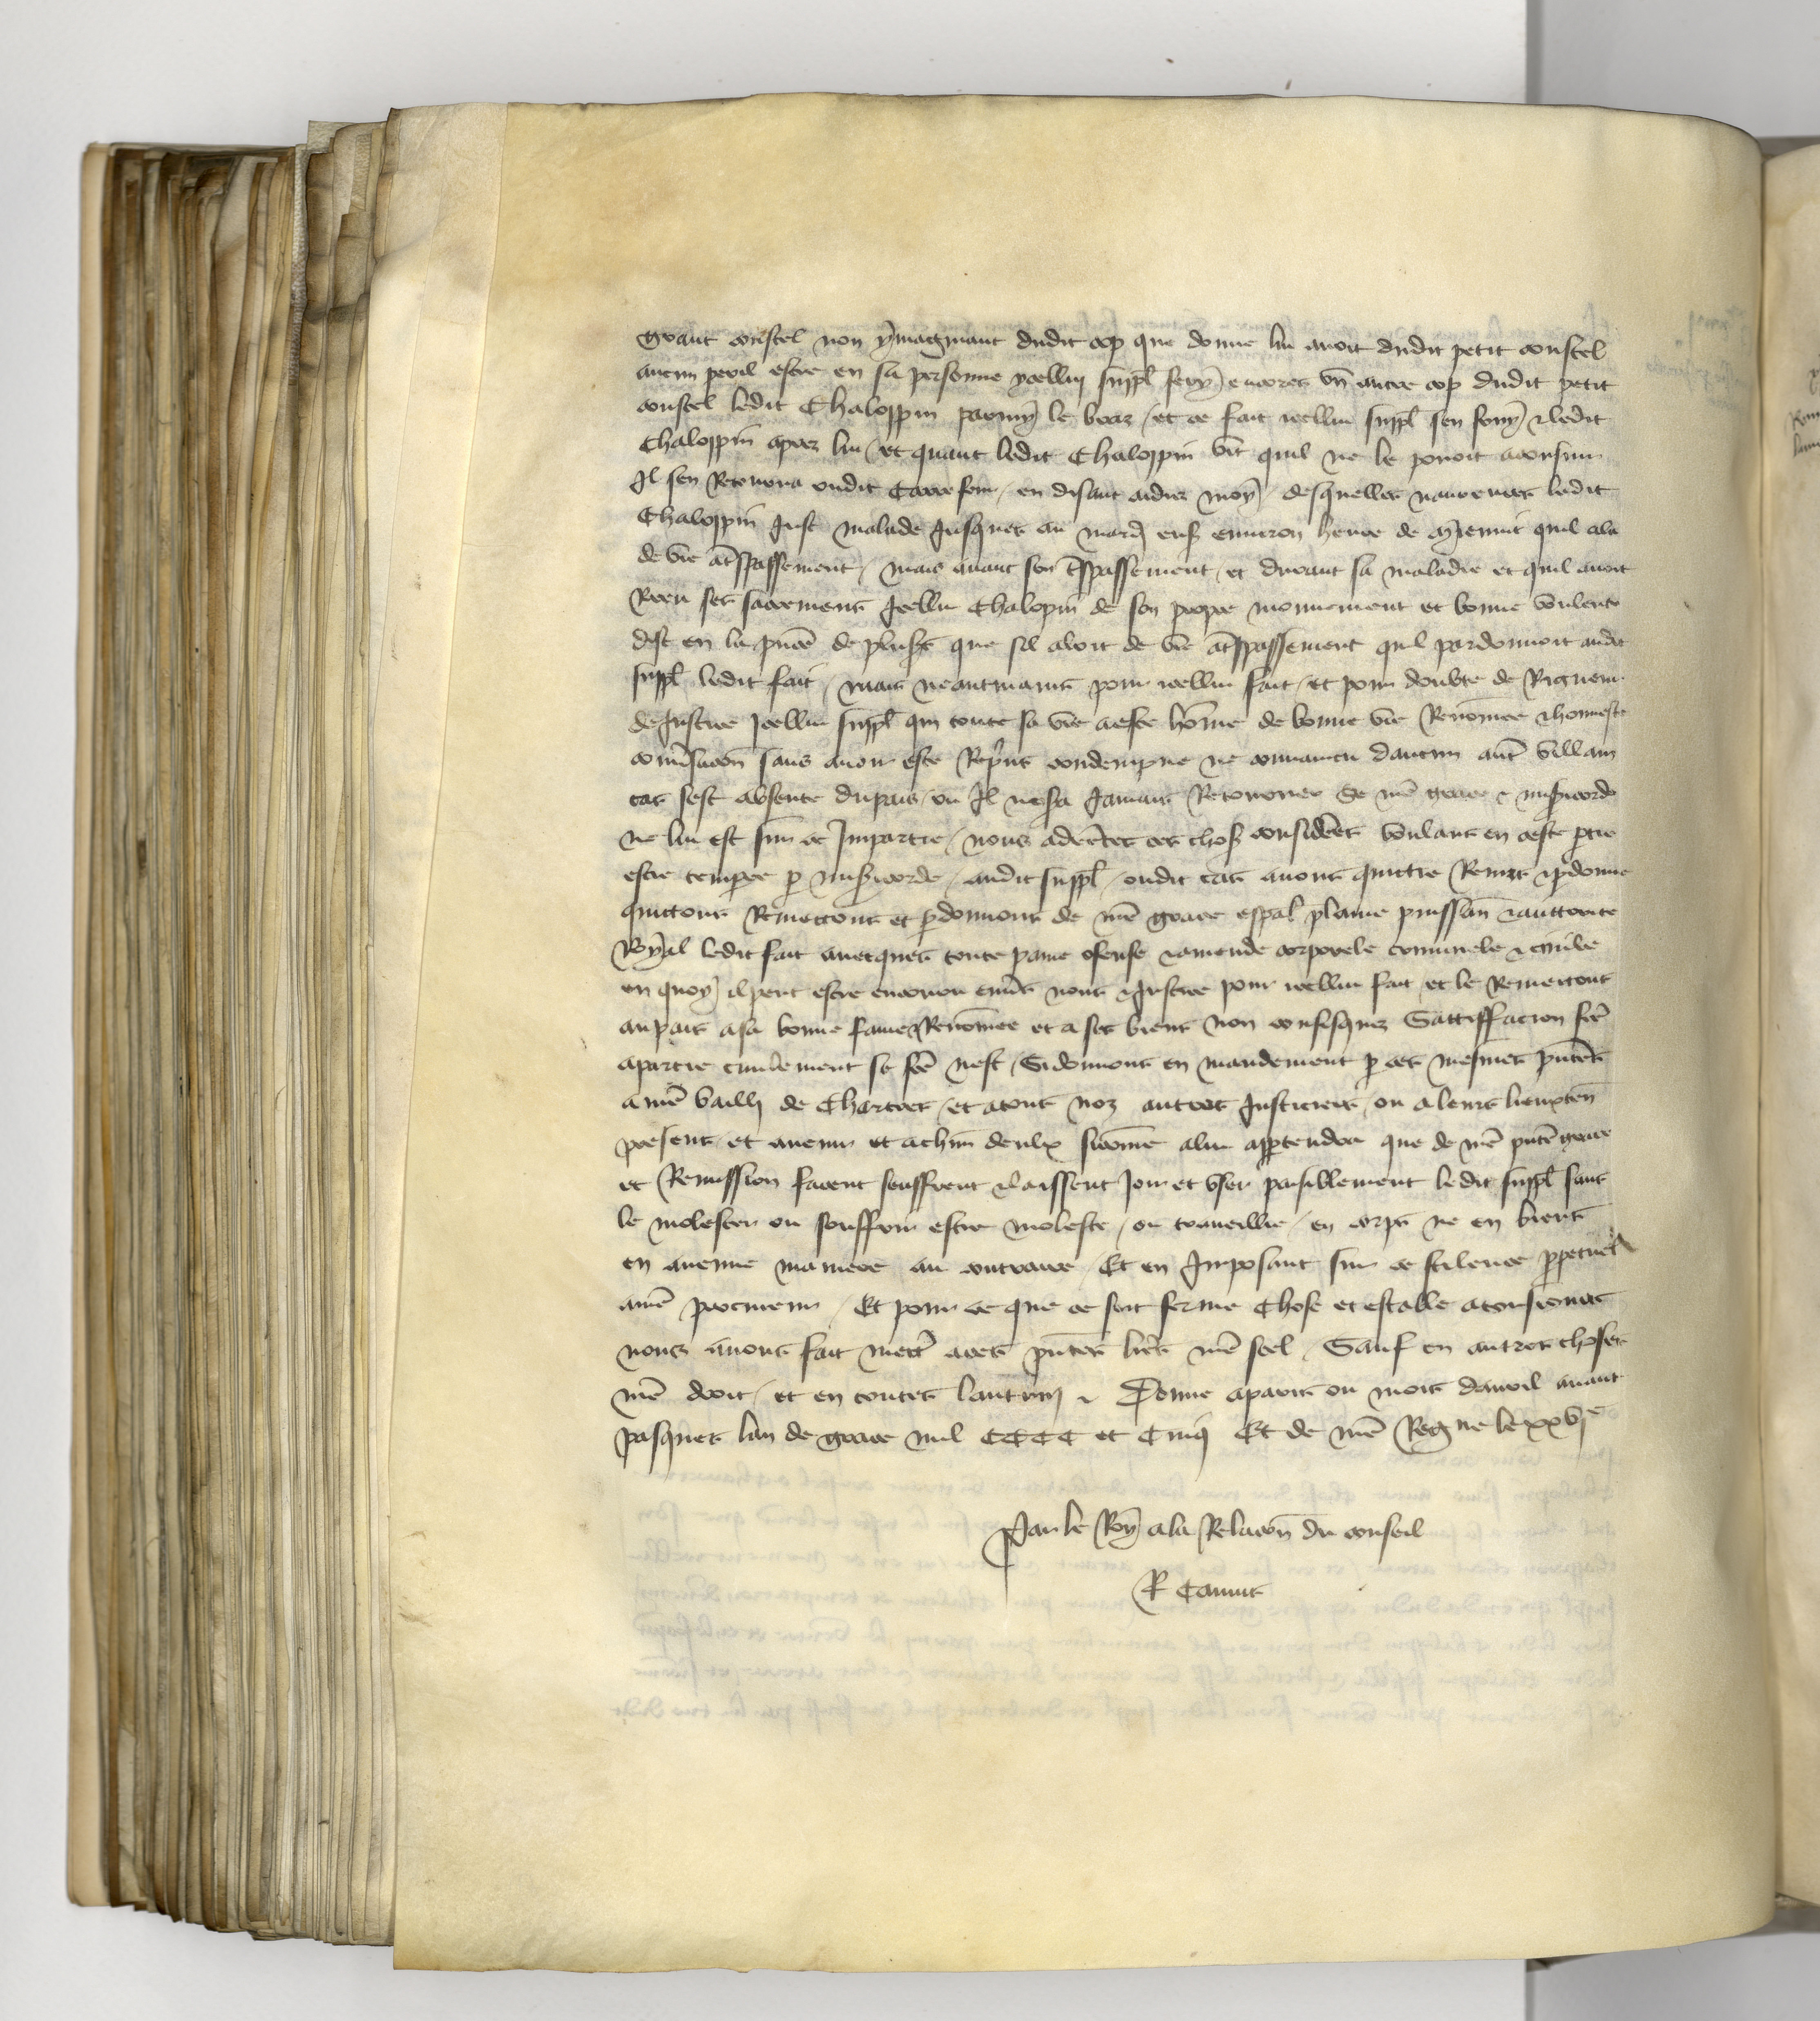 grant coustel non ymaginant dudit cop que donne lui avoit dudit petit coustel
aucun peril estre en sa personne ycellui suppl fery encores un autre cop dudit petit
coustel ledit Chaloppin parmy le braz / et ce fait icellui suppl sen fouy & ledit
Chaloppin apres lui / et quant ledit Chaloppin vit quil ne le povoit aconsuir
Il sen Retourna oudit Carrefour / en disant aidiez moy / desquelles navreures ledit
Chaloppin fust malade Jusques au mardi ens environ heure de mienuit quil ala
de vie a trespassement / mais avant son trespassement / et durant sa maladie et quil avoit
Receu ses sacremens Jcellui Chalopin de son propre mouvement et bonne voulente
dist en la pnce de plus que sil aloit de vie a trespassement quil pardonnoit audit
suppl ledit fait / mais neantmains pour icellui fait / et pour doubte de Rigueur
de Justice Jcellui suppl qui toute sa vie a este home de bonne vie Renomee & honneste
conversacon sans avoir este Repris condempne ne convaincu daucun autre villain
cas sest absente du pais / ou Il nosa Jamais Retourner se nre grace & misericorde
ne lui est sur ce Impartie / nous adcertes ces choses considerees voulans en ceste partie
estre tempree p misericorde / audit suppl / oudit cas avons quictie Remis & pdonne
quictons Remectons et pdonnons de nre grace espal plaine puissan & auctorite
Royal ledit fait avecques toute paine ofense & amende corporele criminele & civile
en quoy il peut estre encouru envers nous & Justice pour icellui fait / et le Remectons
au pais a sa bonne fame & Renomee et a ses biens non confisquez Sattiffacion fce
a partie civilement se fce nest / Si donnons en mandement p ces mesmes pntes
a nre bailli de Chartres / et a touz noz autres Justiciers / ou a leurs lieuxten
presens / et avenir et a chun deulx sicome a lui appartendra que de nre pnte grace
et Remission facent seuffrent & laissent Joir et user paisiblement ledit suppl sans
le molester ou souffrir estre moleste / ou traveillie / en corps ne en biens
en aucune maniere au contraire / Et en Imposant sur ce scilence ppetuel
a nre procureur / Et pour ce que ce soit ferme chose et estable a tousiours
nous avons fait mectre a ces pntes lres nre seel / Sauf en autres choses
nre droit / et en toutes lautruy & Donne a paris ou mois davril avant
pasques lan de grace mil CCCC et Cinq Et de nre Regne le xxvj e
Par le Roy a la Relacon du conseil
R Camus